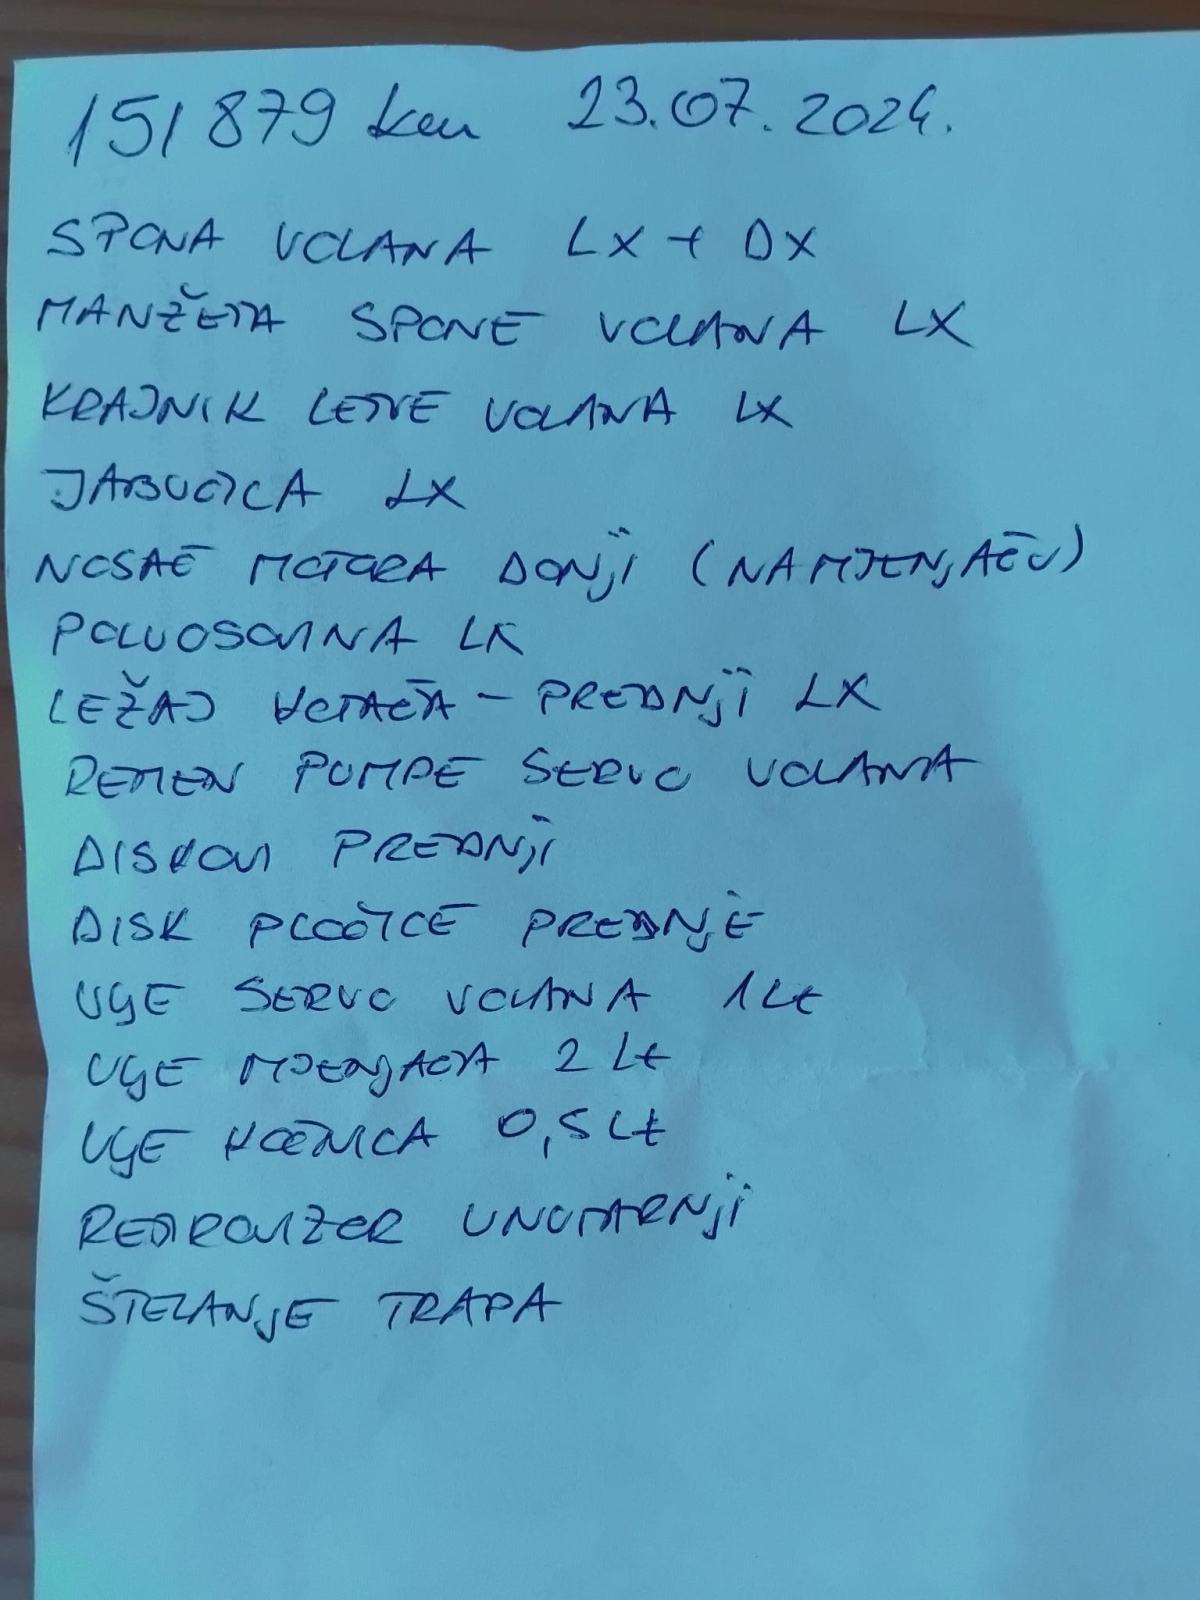 151879 km 23.07.2024.
SPONA VOLANA LX + DX
MANŽETA SPONE VOLANA LX
KRAJNIK LETVE VOLANA LX
JABUČICA LX
NOSAČ MOTORA DONJI (NA MJENJAČU)
POLUOSOVINA LX
LEŽAJ KOTAČA - PREDNJI LX
REMEN PUMPE SERVO VOLANA
DISKOVI PREDNJI
DISK PLOČICE PREDNJE
ULJE SERVO VOLANA 1 Lt
ULJE MJENJAČA 2 Lt
ULJE KOČNICA 0,5 Lt
RETROVIZOR UNUTARNJI
ŠTELANJE TRAPA